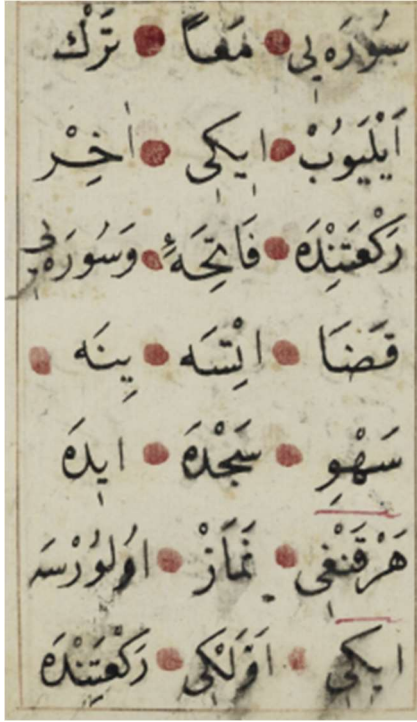 سُورَه‌يِى مَعاً تَرْكْ
اَيْلَيُوبْ ايكِى اٰخِرْ
رَكْعَتِنْدَه فَاتِحَۀِٔ وَسُورَه‌يِى
قَضَا اتْسَه يِنَه
سَهْوِ سَجْدَه ايدَه
هَرْقَنْغِى نَمَازْ اوُلوُرْسَه
ايكِى اَوَّلْكِى رَكْعَتِنْدَه